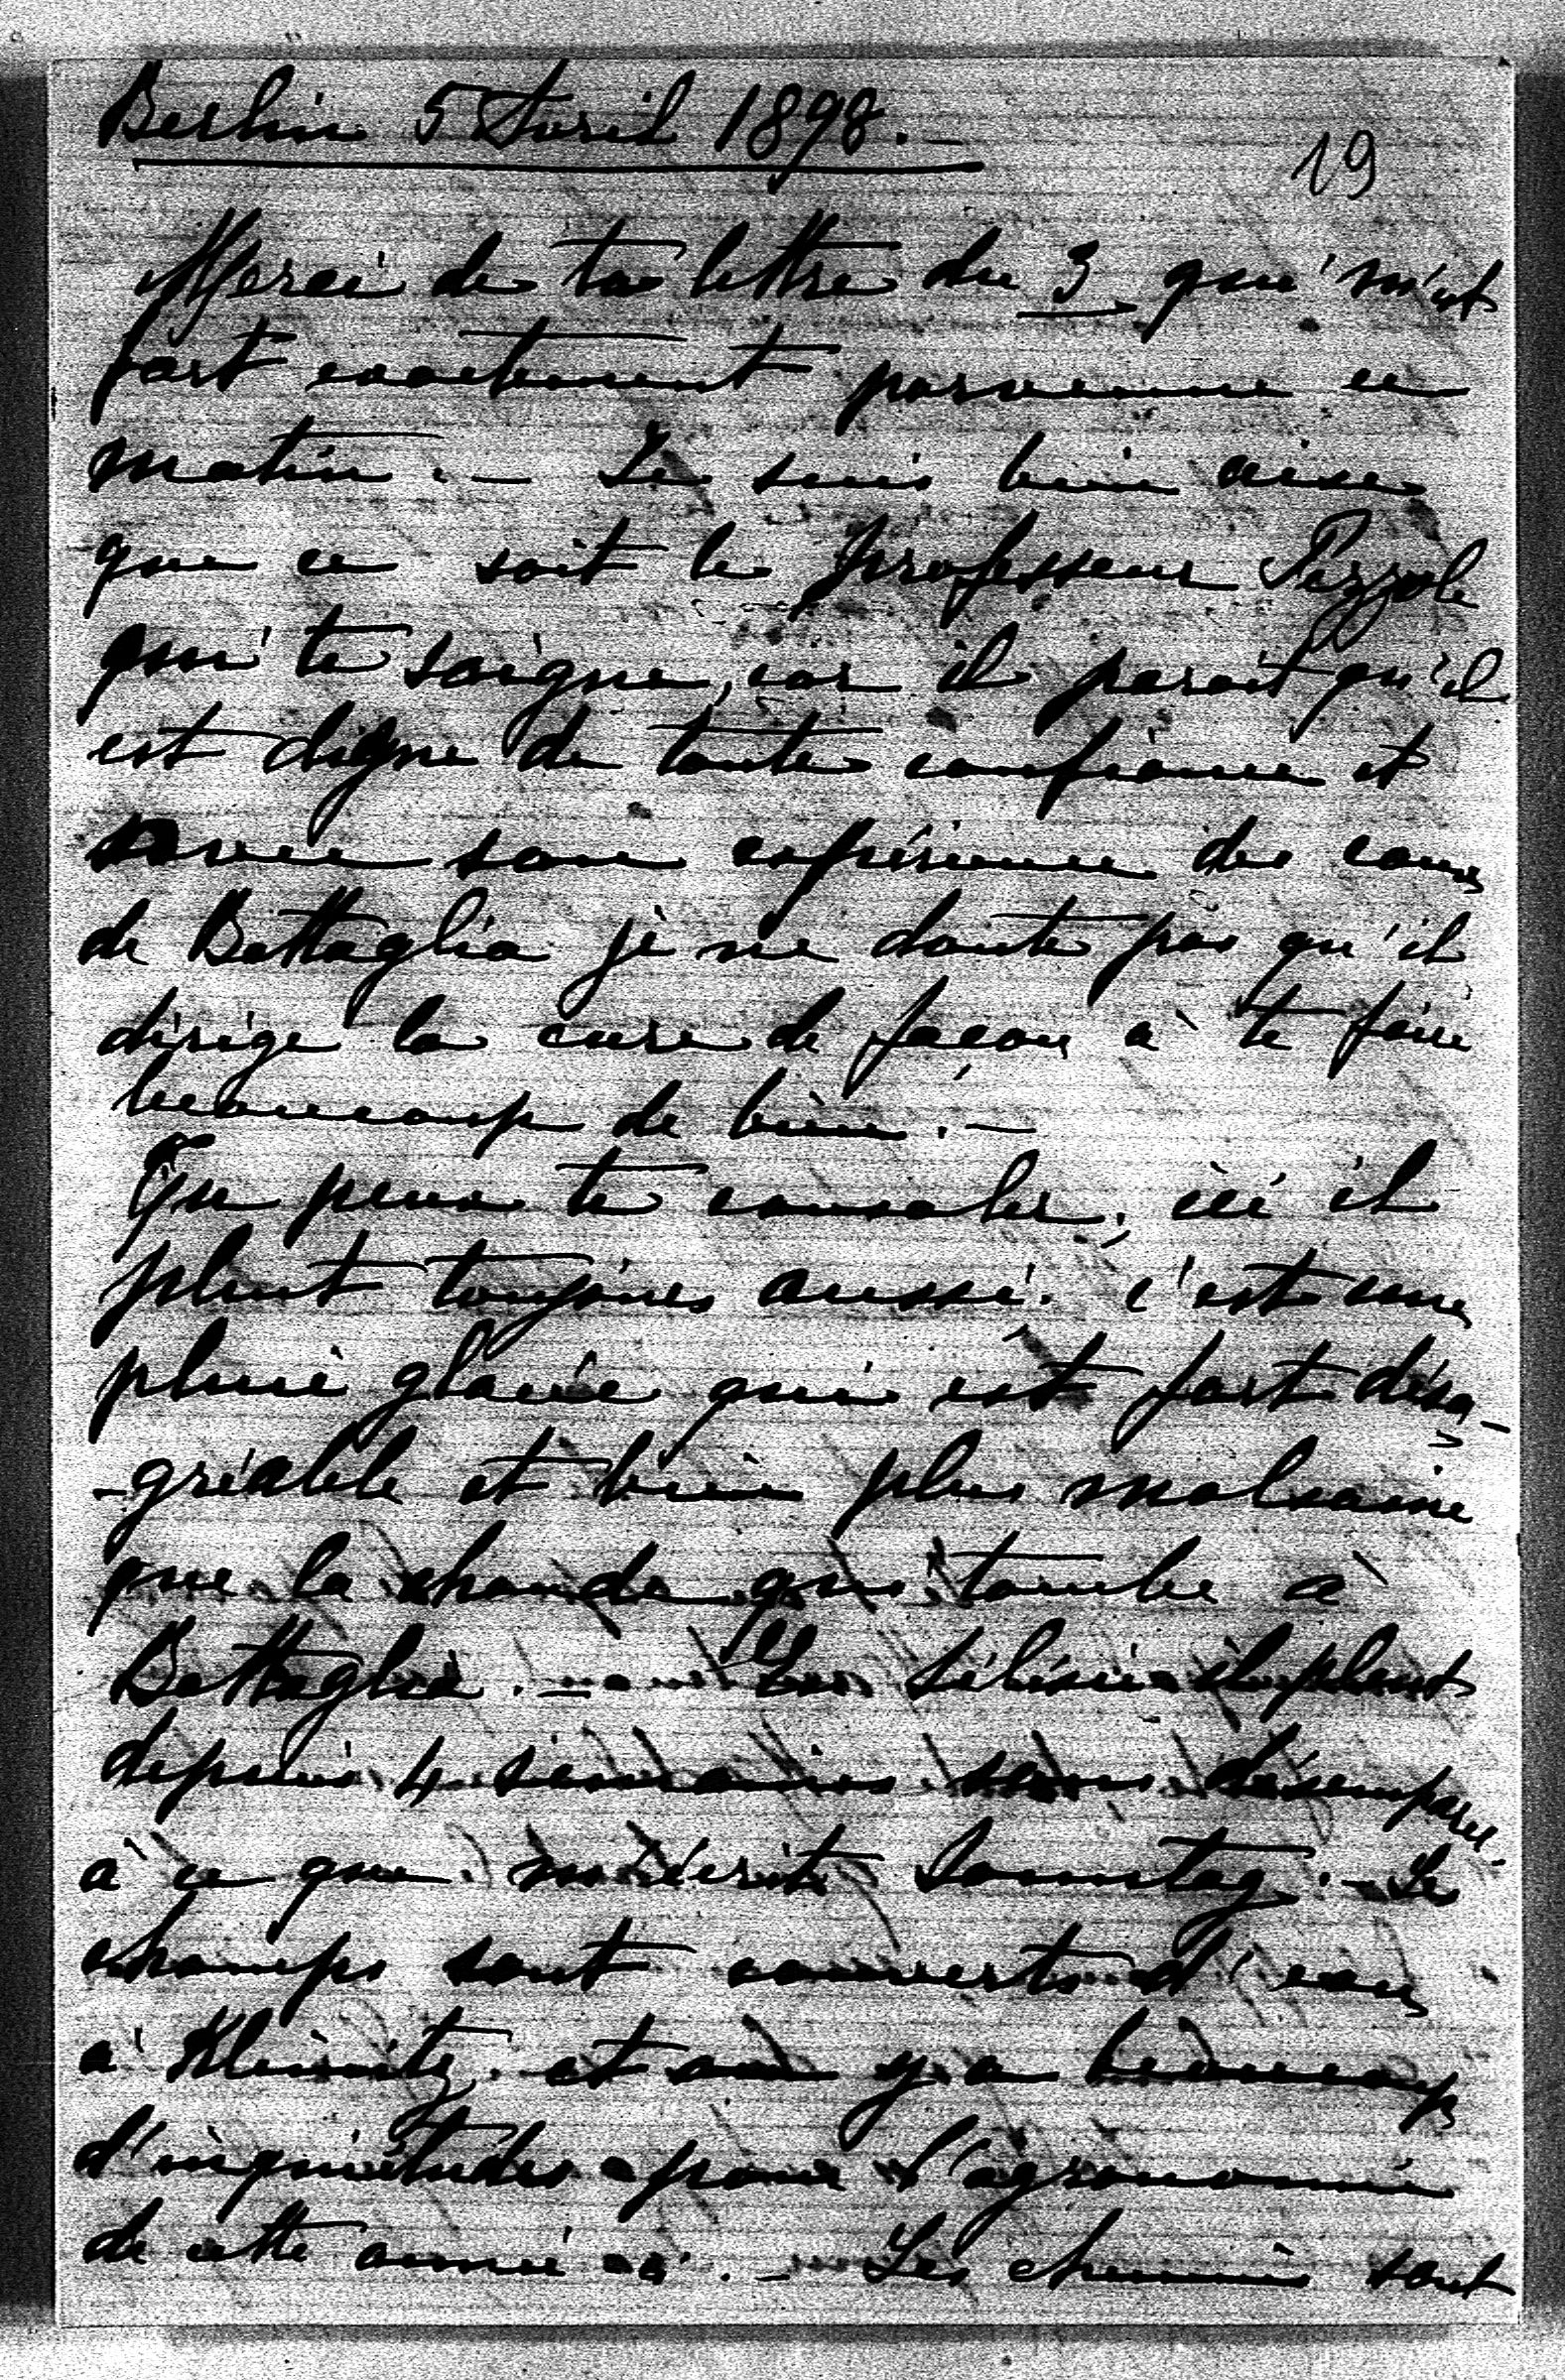 Berlin 5 Avril 1898. —
19
Merci de ta lettre du 3 qui m'est
fort exactement parvenue ce
matin. — Je suis bien aise
que ce soit le professeur Pezzole
qui te soigne, car il parait qu'il
est digne de toute confiance et
avec son expérience des eaux
de Battaglia je ne doute pas qu'il
dirige la cure de façon à te faire
beaucoup de bien. —
Que peux te consoler, ici il
pleut toujours aussi. C'est une
pluie glacée qui est fort désa-
-gréable et bien plus malsaine
que la chaude qui tombe à
Battaglia. — En Silésie il pleut
depuis 4 semaines sans désemparer
à ce que m'écrit Sonntag. — Les
champs sont couverts d'eau
à et on y a beaucoup
d'inquiétudes pour l'agronomie
de cette année ci. — Les chemins sont